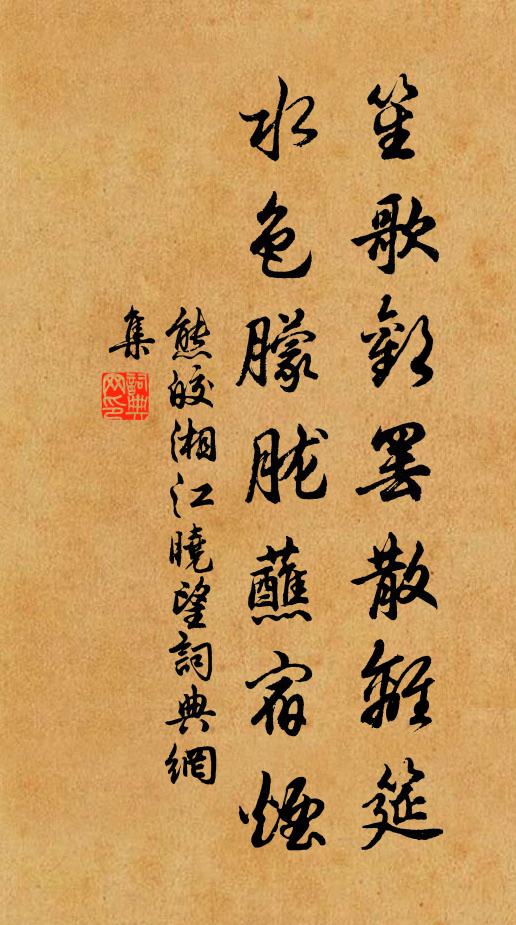 笙歌罷散離筵
水色朦胧蘸宿煙
熊皎湘江曉望詞典網
集
詞典網印